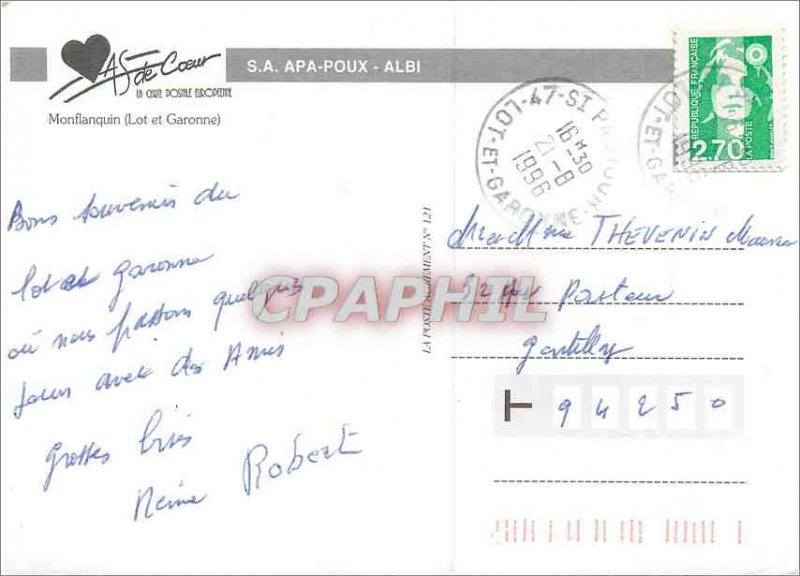 AS de Cœur
LA CARTE POSTALE EUROPEENNE
S.A. APA-POUX - ALBI
Monflanquin (Lot et Garonne)
Bons souvenirs du
lot et garonne
où nous passons quelques
jours avec des Amis
grosses bises
Robert
LA POSTE AGREMENT N° 121
47-ST
LOT-ET-GARONNE
16 H 30
21-8
1996
REPUBLIQUE FRANÇAISE
LA POSTE
2,70
THEVENIN
52 Rue Pasteur
gentilly
94250
CPAPHIL